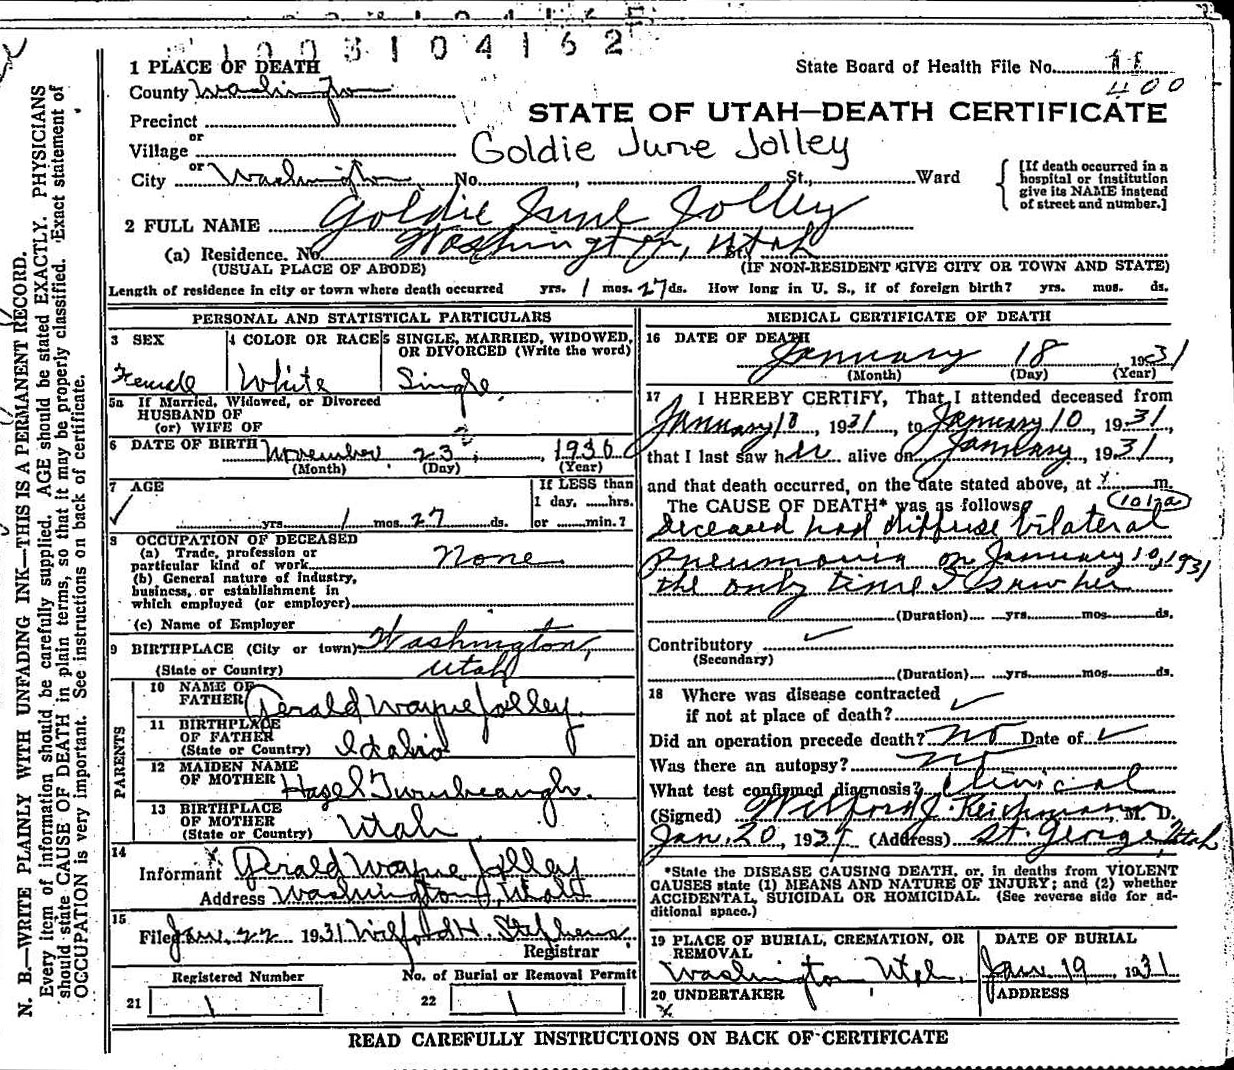 1003104162
1 PLACE OF DEATH
State Board of Health File No. 11
400
County Washington
Precinct
STATE OF UTAH—DEATH CERTIFICATE
or
Village
Goldie June Jolley
or
City Washington No. , St., Ward
[If death occurred in a
hospital or institution
give its NAME instead
of street and number.]
2 FULL NAME Goldie June Jolley
(a) Residence. No. Washington, Utah St.,
(USUAL PLACE OF ABODE) (IF NON-RESIDENT GIVE CITY OR TOWN AND STATE)
Length of residence in city or town where death occurred yrs. 1 mos. 27 ds. How long in U. S., if of foreign birth? yrs. mos. ds.
PERSONAL AND STATISTICAL PARTICULARS
3 SEX 4 COLOR OR RACE 5 SINGLE, MARRIED, WIDOWED,
OR DIVORCED (Write the word)
Female White Single
5a If Married, Widowed, or Divorced
HUSBAND OF
(or) WIFE OF
6 DATE OF BIRTH November 23, 1930
(Month) (Day) (Year)
7 AGE
If LESS than
1 day, hrs.
yrs. 1 mos. 27 ds. or min.?
8 OCCUPATION OF DECEASED
(a) Trade, profession or
particular kind of work None
(b) General nature of industry,
business, or establishment in
which employed (or employer)
(c) Name of Employer
9 BIRTHPLACE (City or town) Washington,
(State or Country) Utah
PARENTS
10 NAME OF
FATHER Gerald Wayne Jolley
11 BIRTHPLACE
OF FATHER
(State or Country) Idaho
12 MAIDEN NAME
OF MOTHER Hazel Turnbeaugh.
13 BIRTHPLACE
OF MOTHER
(State or Country) Utah
14
Informant Gerald Wayne Jolley
Address Washington, Utah
15
Filed Jan. 22 1931 Wilford H. Stephens,
Registrar
Registered Number No. of Burial or Removal Permit
21 1 22 1
MEDICAL CERTIFICATE OF DEATH
16 DATE OF DEATH
January 18 1931
(Month) (Day) (Year)
17 I HEREBY CERTIFY, That I attended deceased from
January 10, 1931, to January 10, 1931,
that I last saw her alive on January, 1931,
and that death occurred, on the date stated above, at m.
The CAUSE OF DEATH* was as follows: 107a
Deceased had diffuse bilateral
pneumonia on January 10, 1931
the only time I saw her
(Duration) yrs. mos. ds.
Contributory
(Secondary)
(Duration) yrs. mos. ds.
18 Where was disease contracted
if not at place of death?
Did an operation precede death? No Date of
Was there an autopsy? No
What test confirmed diagnosis? Clinical
(Signed) Wilford J. Reichmann, M. D.
Jan. 20, 1931 (Address) St. George, Utah
*State the DISEASE CAUSING DEATH, or, in deaths from VIOLENT
CAUSES state (1) MEANS AND NATURE OF INJURY; and (2) whether
ACCIDENTAL, SUICIDAL OR HOMICIDAL. (See reverse side for ad-
ditional space.)
19 PLACE OF BURIAL, CREMATION, OR
REMOVAL
Washington Utah,
DATE OF BURIAL
Jan. 19, 1931
20 UNDERTAKER ADDRESS
READ CAREFULLY INSTRUCTIONS ON BACK OF CERTIFICATE
N. B.—WRITE PLAINLY WITH UNFADING INK—THIS IS A PERMANENT RECORD.
Every item of information should be carefully supplied. AGE should be stated EXACTLY. PHYSICIANS
should state CAUSE OF DEATH in plain terms, so that it may be properly classified. Exact statement of
OCCUPATION is very important. See instructions on back of certificate.